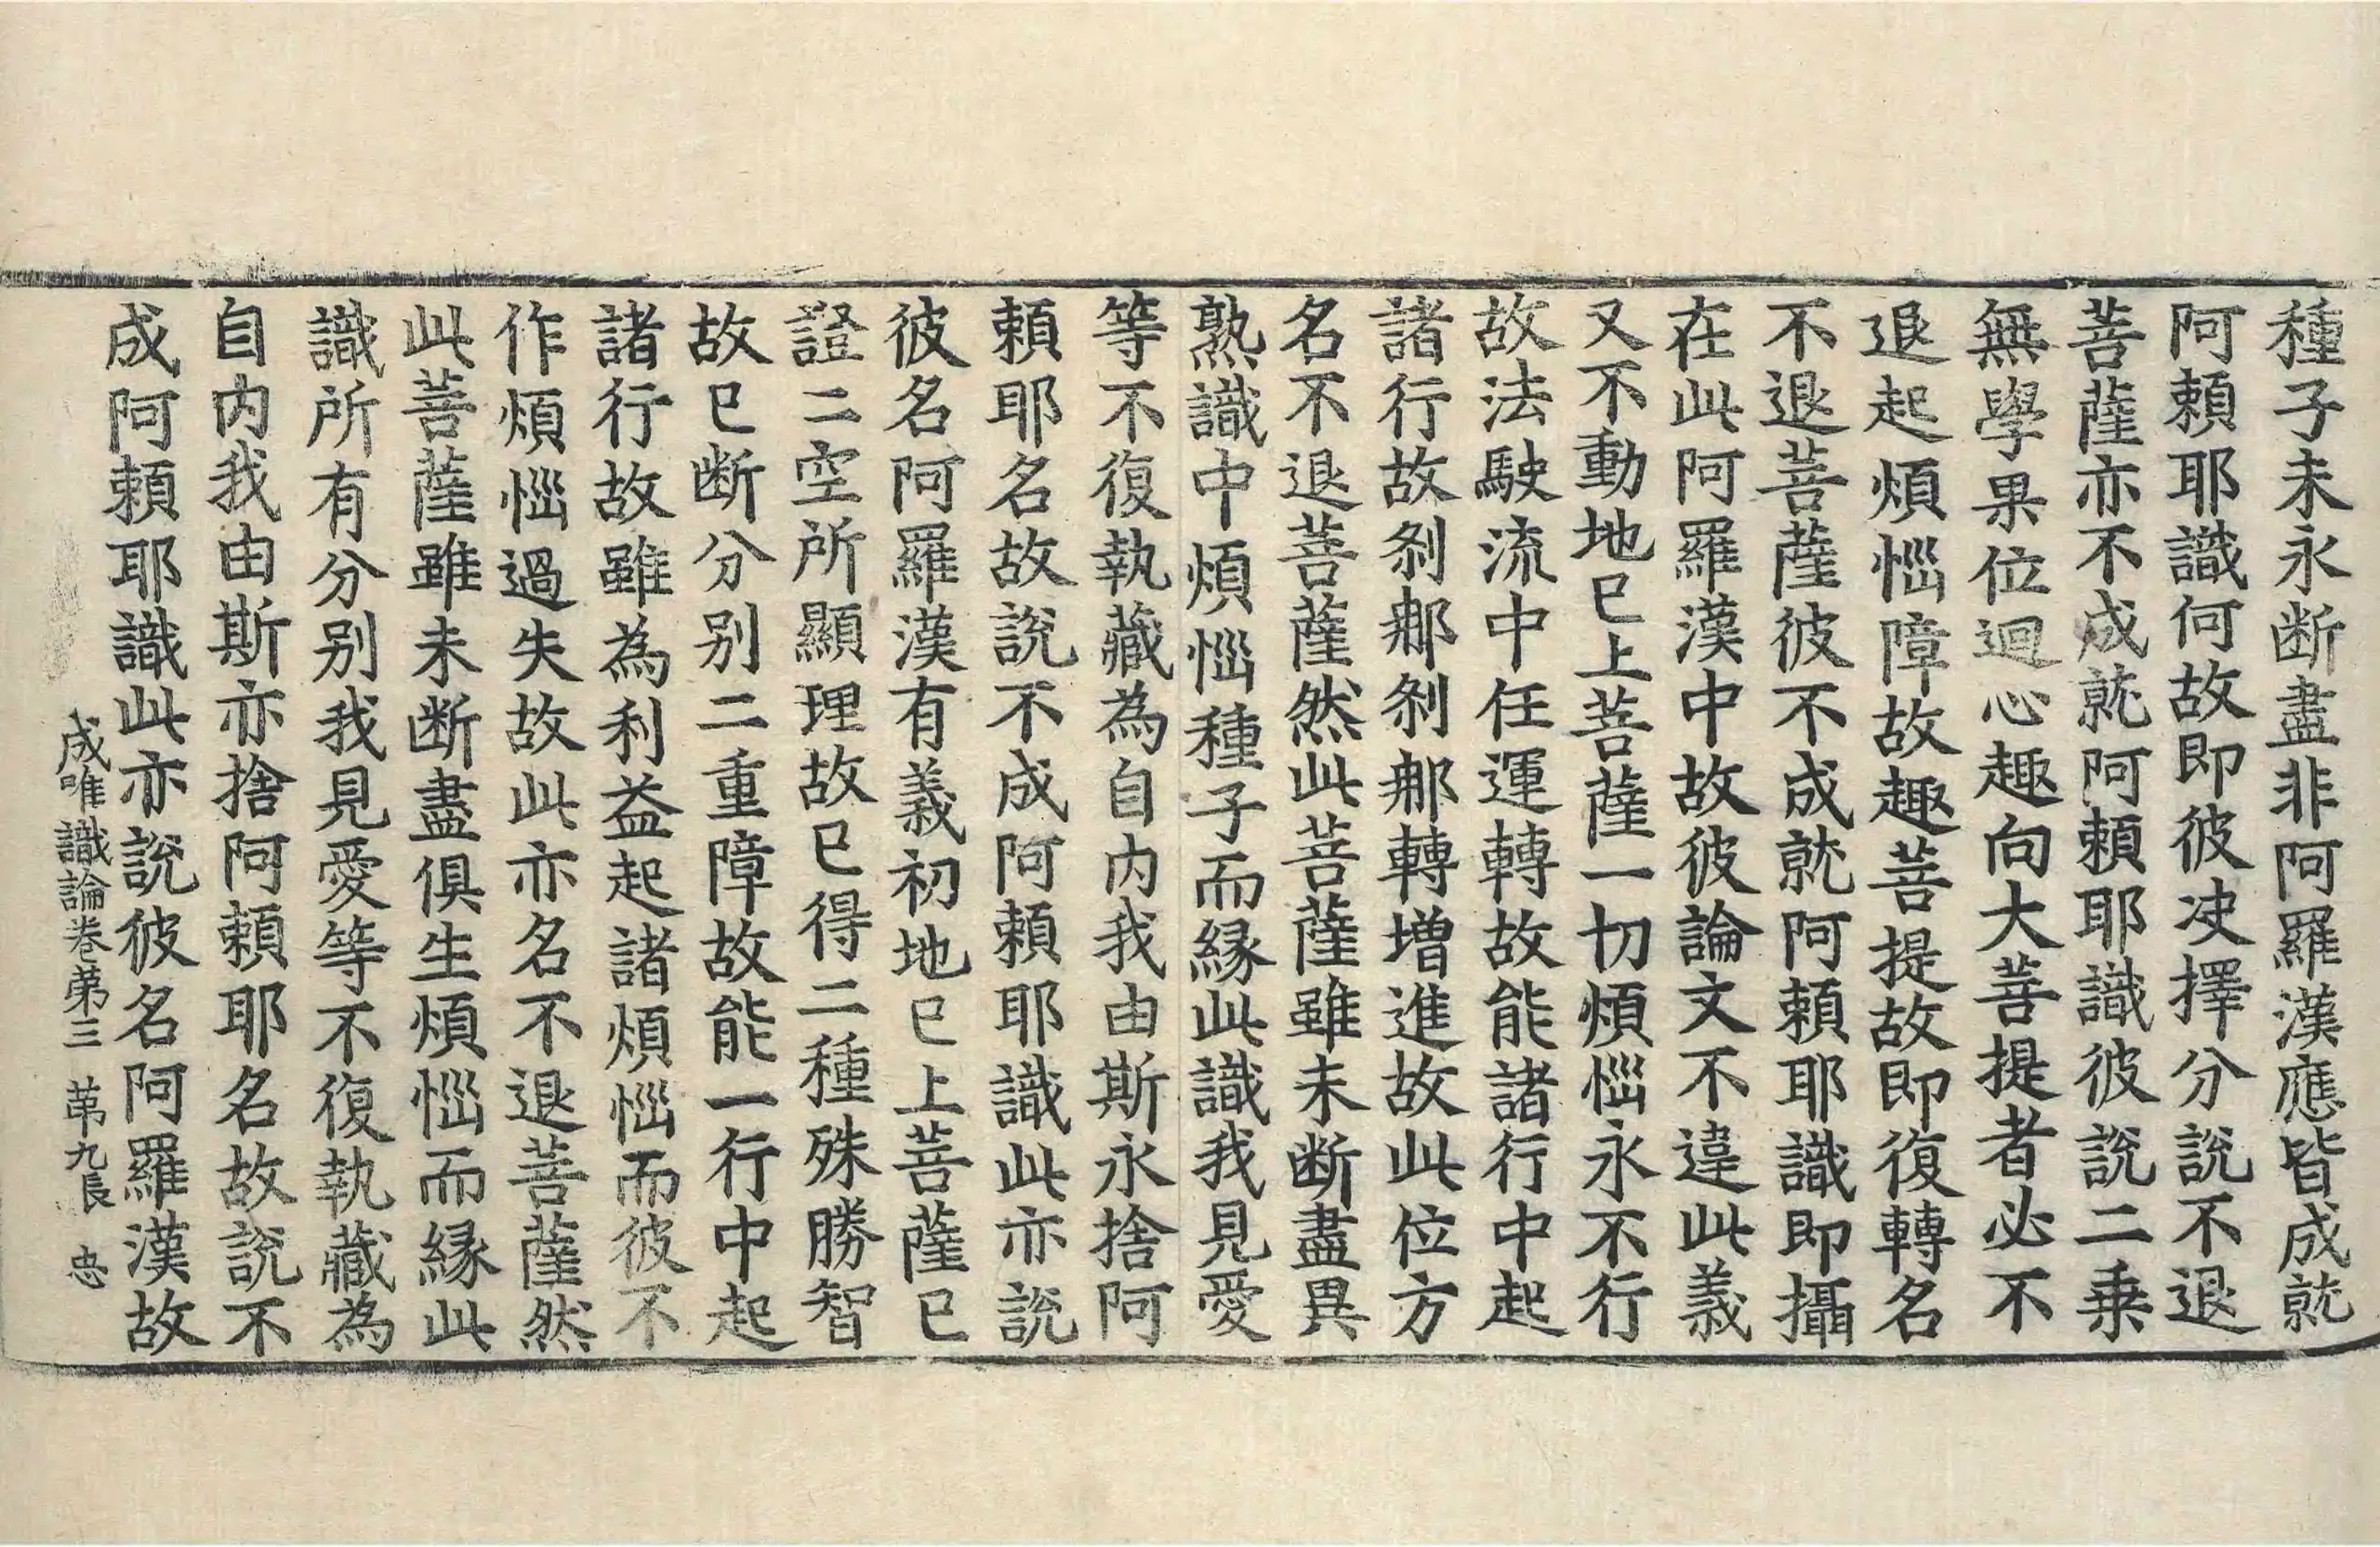 種子未永断盡非阿羅漢應皆成就
阿頼耶識何故即彼决擇分說不退
菩薩亦不成就阿頼耶識彼說二乗
無學果位迴心趣向大菩提者必不
退起煩惱障故趣菩提故即復轉名
不退菩薩彼不成就阿頼耶識即攝
在此阿羅漢中故彼論文不違此義
又不動地已上菩薩一切煩惱永不行
故法駛流中任運轉故能諸行中起
諸行故剎那剎那轉增進故此位方
名不退菩薩然此菩薩雖未断盡異
熟識中煩惱種子而縁此識我見愛
等不復執藏為自内我由斯永捨阿
頼耶名故說不成阿頼耶識此亦說
彼名阿羅漢有義初地已上菩薩已
證二空所顯理故已得二種殊勝智
故已断分别二重障故能一行中起
諸行故雖為利益起諸煩惱而彼不
作煩惱過失故此亦名不退菩薩然
此菩薩雖未断盡俱生煩惱而縁此
識所有分别我見愛等不復執藏為
自内我由斯亦捨阿頼耶名故說不
成阿頼耶識此亦說彼名阿羅漢故
成唯識論卷第三 第九長 忠